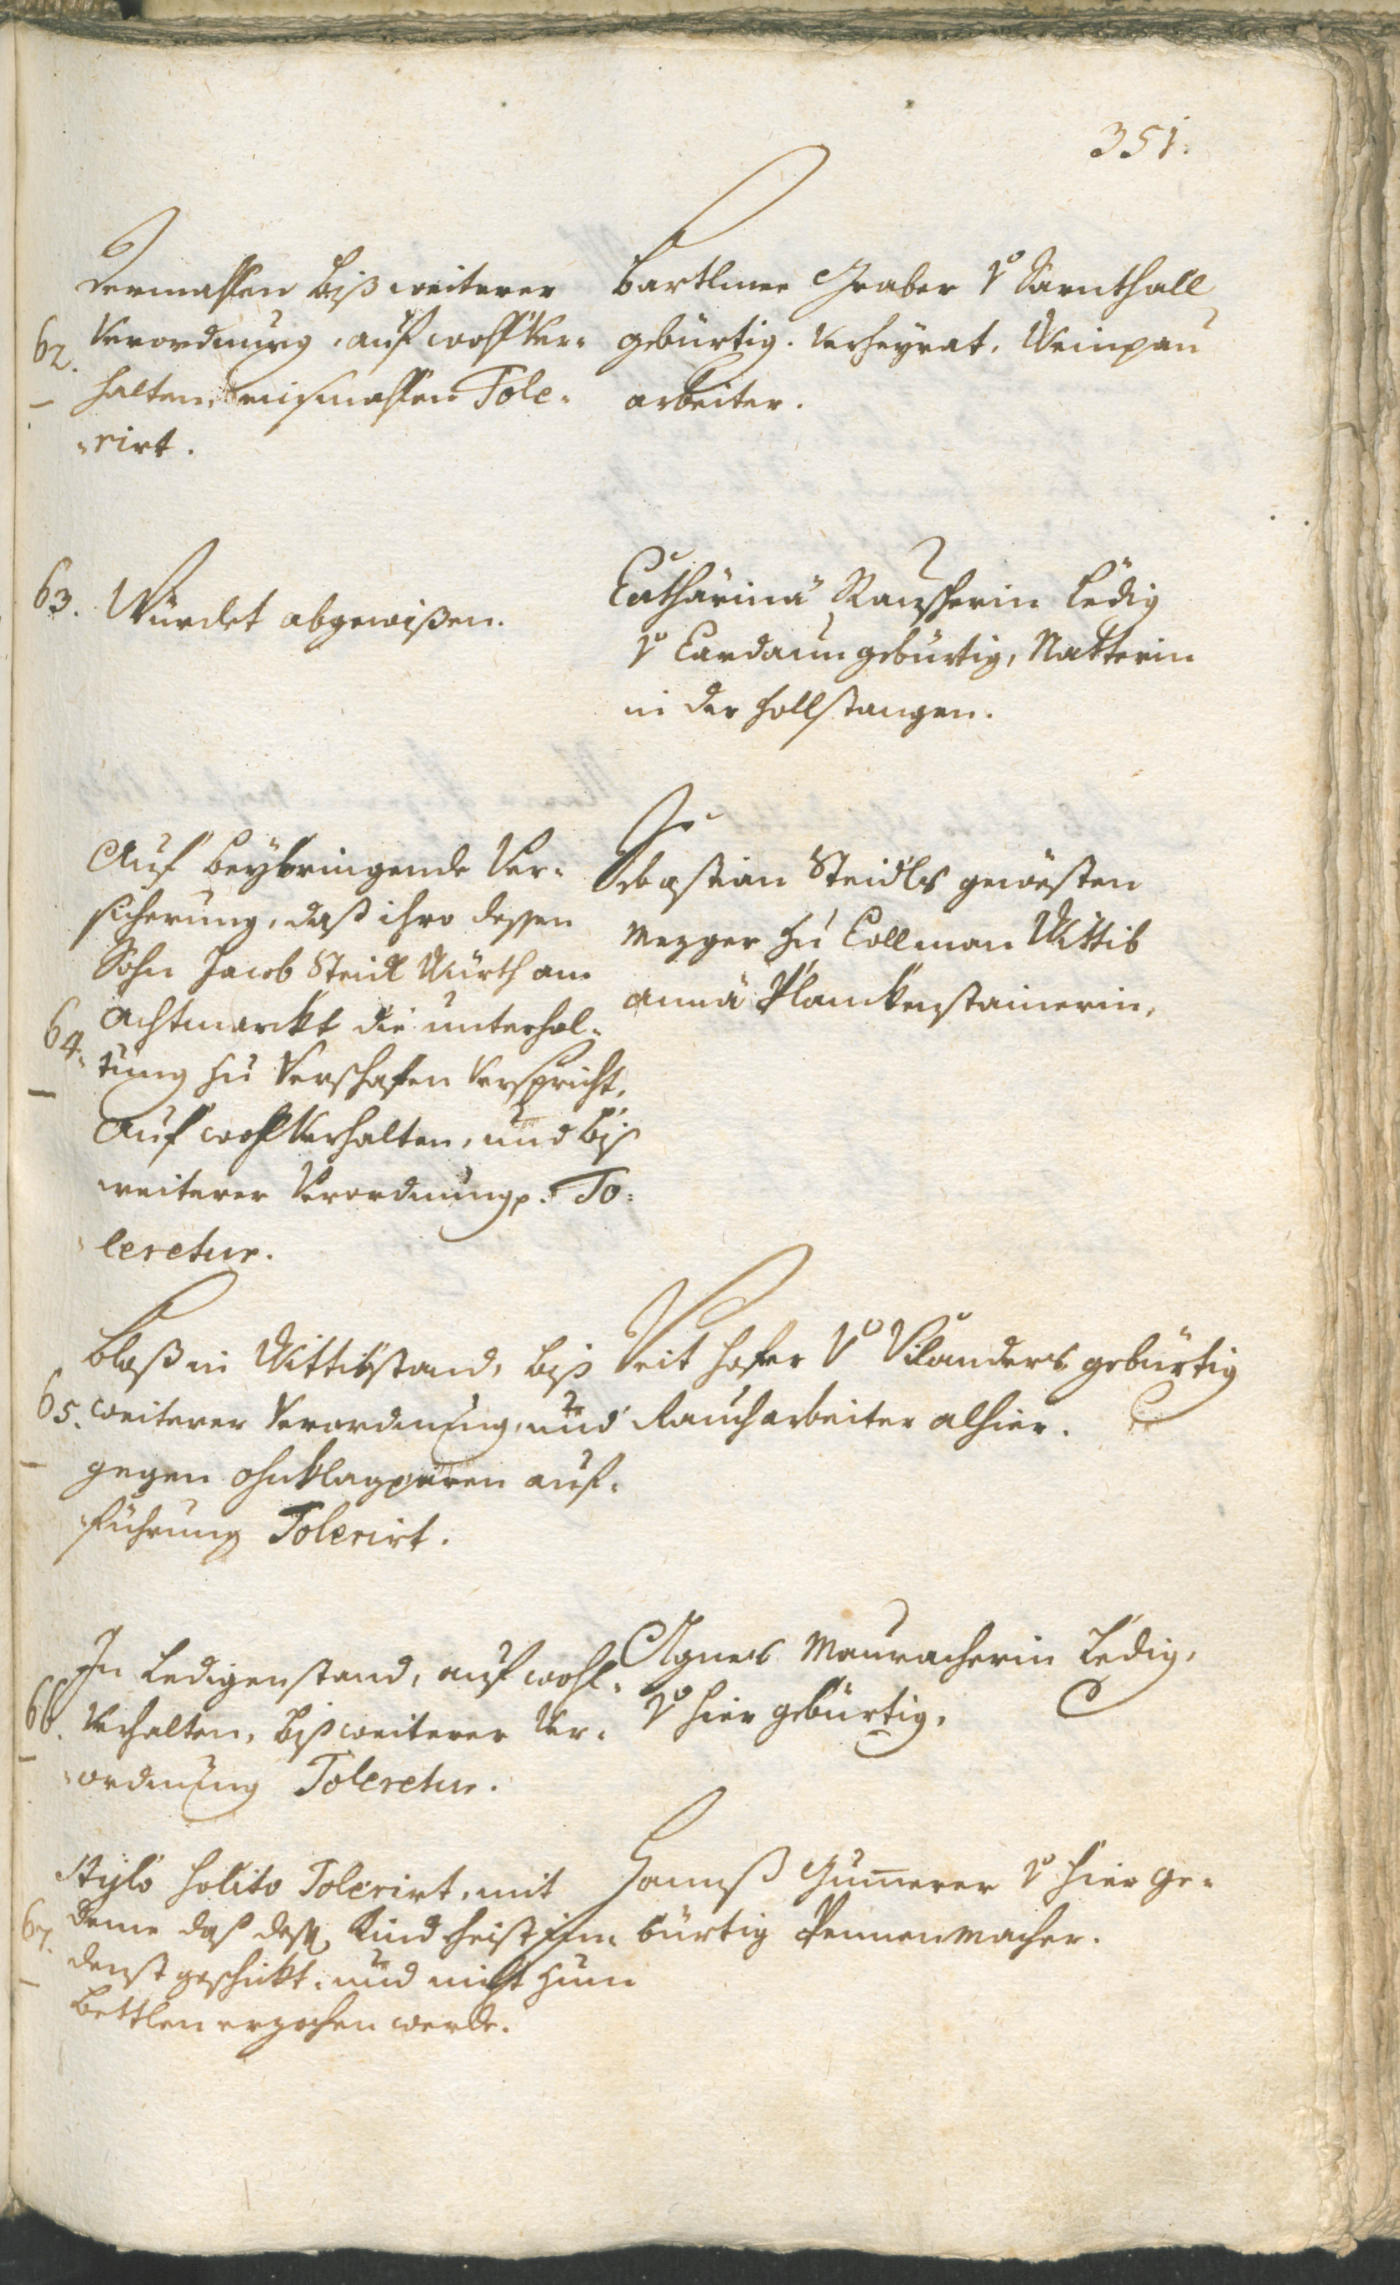 351.
62.
dermassen biß weiterer
Verordnung, auf wohl Ver-
halten, einsmassen Tole-
rirt.
Bartlmee Graber v° Sarnthall
gebürtig. verheyrat, Weinpau
arbeiter.
63.
Würdet abgewißen.
Catharina Rauscherin ledig
v° Cardaun gebürtig, Natterin
in der hollstangen.
64.
Auf beybringende Ver-
sicherung, daß ihro dessen
Sohn Jacob Steidl Würth am
Achtmarckt die unterhal-
tung zu verschafen verspricht,
Auf wohl Verhalten, und biß
weiterer Verordnung. To-
leretur.
Sebastian Steidls gewesten
Mezger zu Collman Wittib
Anna Planckenstainerin,
65.
bloß in Wittibstand, biß
weiterer Verordnung, und
gegen ohnklagparen auf-
führung Tolerirt.
Veit Hofer v° Vilanders gebürtig
Raucharbeiter alhier.
66.
In Ledigenstand, auf wohl-
verhalten, biß weiterer Ver-
ordnung Toleretur.
Agnes Mauracherin Ledig,
v° hier gebürtig,
67.
Stylo solito Tolerirt, mit
deme daß dess Kind
denst geschickt, und nicht zum
bettlen erzochen werde.
Hannß Gumerer v° hier ge-
bürtig Pennenmacher.